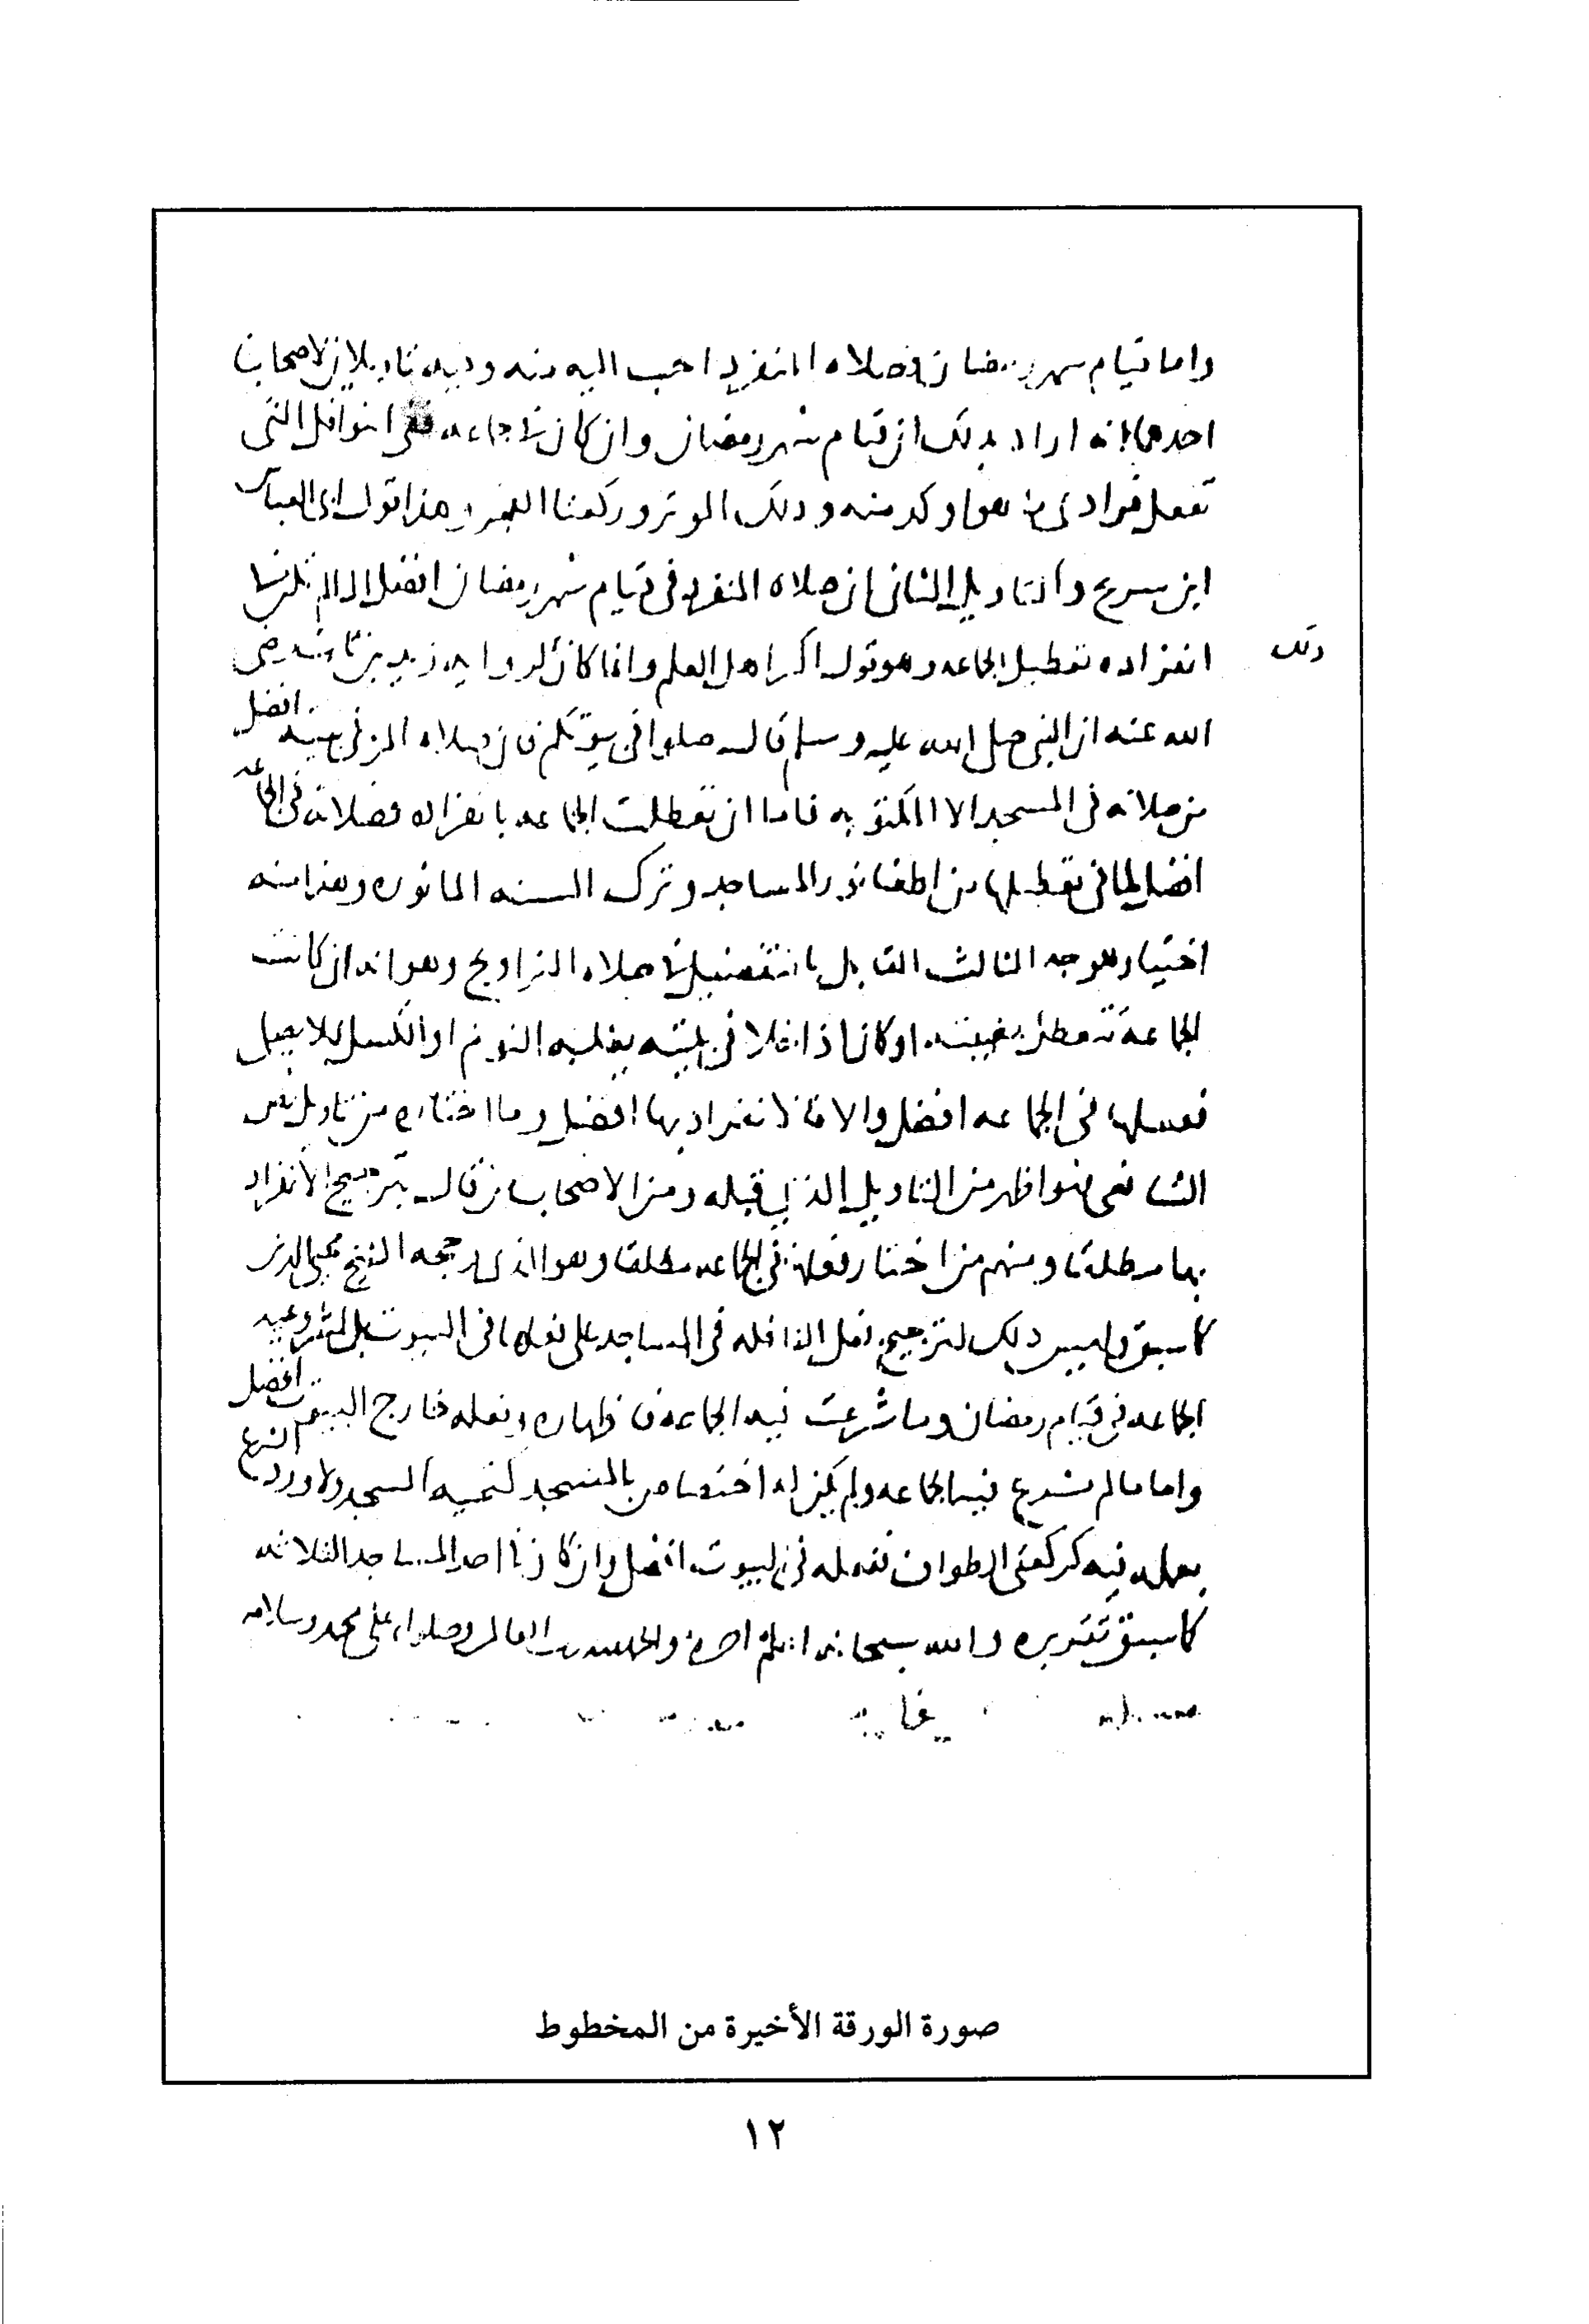 واما قيام شهر رمضان فصلاه المنفرد احب اليه منه وفيه تاويلان لاصحابنا
احدهما انه اراد بذلك ان قيام شهر رمضان وان كان في جماعه ففي النوافل التي
تفعل فرادى ما هو اوكد منه وذلك الوتر وركعتا الفجر وهذا قول ابي العباس
ابن سريج والتاويل الثاني ان صلاه المنفرد في قيام شهر رمضان افضل اذا لم
ذلك
انفراده تعطيل الجماعه وهو قول اكثر اهل العلم وانما كان لروايه زيد بن ثابت رضي
الله عنه ان النبي صلى الله عليه وسلم قال صلوا في بيوتكم فان صلاه المرء في بيته افضل
من صلاته في المسجد الا المكتوبه فاما ان تعطلت الجماعه بانفراده فصلاته في الجماعه
افضل لما في تعطيلها من اطفا نور المساجد وترك السنه الماثوره وهذا منه
اختيار للوجه الثالث القايل بالتفصيل في صلاه التراويح وهو انه ان كانت
الجماعة تتعطل بغيبته او كان اذا خلا في بيته يغلبه النوم او الكسل فلا يصل
ففعلها في الجماعه افضل والا فالانفراد بها افضل وما اختاره من تاويل نص
الشافعي هو اظهر من التاويل الذي قبله ومن الاصحاب من قال بترجيح الانفراد
بها مطلقا ومنهم من اختار فعلها في الجماعه مطلقا وهو الذي رجحه الشيخ محيي الدين
كما سبق وليس ذلك لترجيح فعل النافله في المساجد على فعلها في البيوت بل لمشروعيه
الجماعه في قيام رمضان وما شرعت فيه الجماعه فاظهاره وفعله خارج البيوت افضل
واما ما لم يشرع فيه الجماعه ولم يكن له اختصاص بالمسجد كتحيه المسجد ولا ورد الشرع
بفعله فيه كركعتي الطواف ففعله في البيوت افضل وان كان في احد المساجد الثلاثه
كما سبق تقريره والله سبحانه اعلم اخره والحمد لله رب العالمين وصلواته على محمد وسلامه
صورة الورقة الأخيرة من المخطوط
١٢